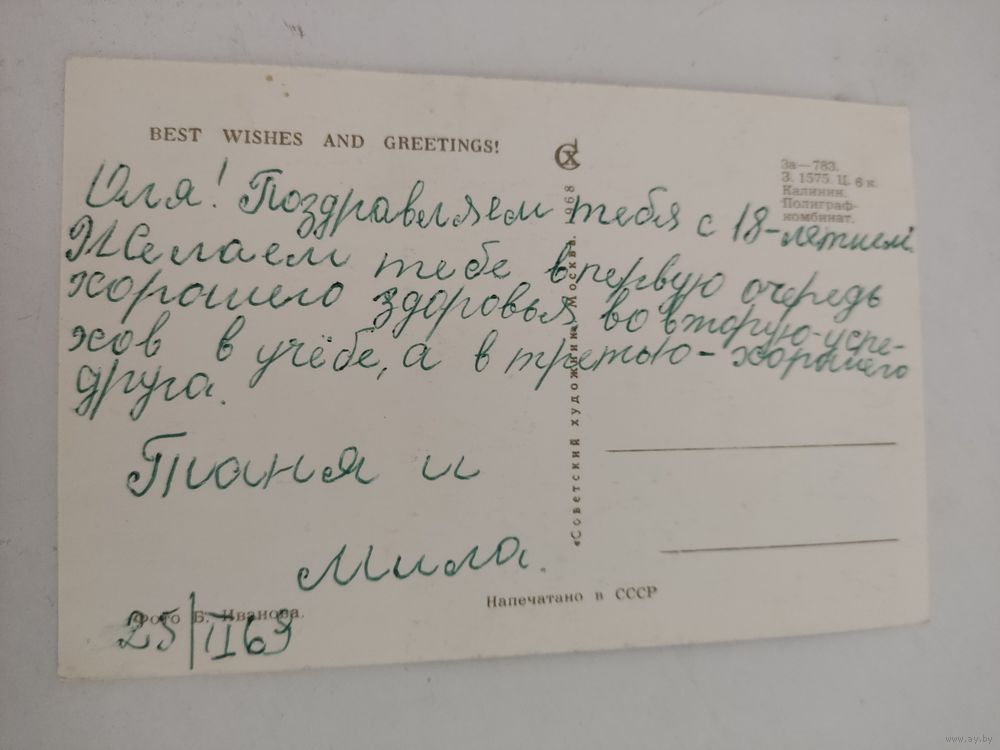 BEST WISHES AND GREETINGS!
За—783.
З. 1575. Ц. 6 к.
Калинин.
Полиграф-
комбинат.
Оля! Поздравляем тебя с 18-летием.
Желаем тебе в первую очередь
хорошего здоровья во вторую-успе-
хов в учёбе, а в третью-хорошего
друга.
Таня и
Мила.
25/II 69
«Советский художник» Москва. 1968
Фото Б. Иванова.
Напечатано в СССР
www.ay.by